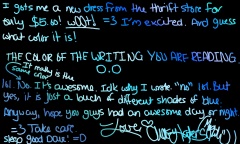 I gots me a new dress from the thrift store for
only $15.60! w00t! =3 I'm excited. And guess
what color it is!
THE COLOR OF THE WRITING YOU ARE READING.
It really is the
same color! O.O
lol. No. It's awesome. Idk why I wrote "no" lol. But
yes, it is just a buch of different shades of blue.
Anyway, hope you guys had an awesome day or night.
=3 Take care.
Sleep good Dear. =D
Love